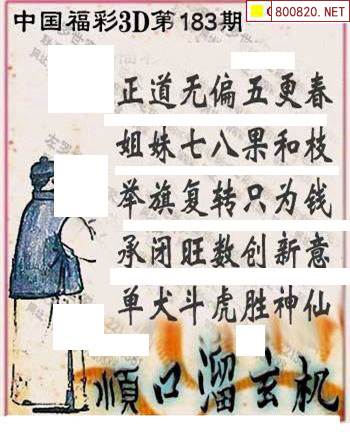 中国福彩3D第183期
800820.NET
正道无偏五更春
姐妹七八果和枝
举旗复转只为钱
承闭旺数创新意
单犬斗虎胜神仙
顺口溜玄机